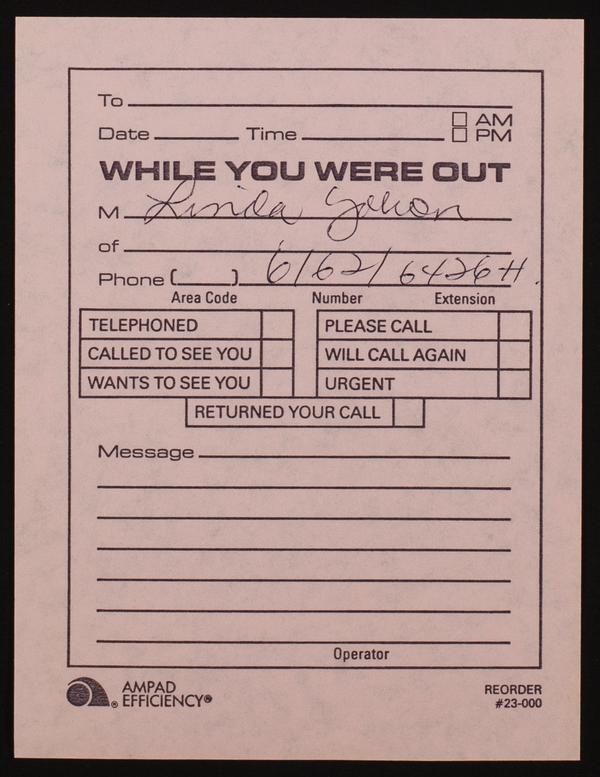 To
Date Time
AM
PM
WHILE YOU WERE OUT
M Linda
of
Phone ( ) 6/62/ 6426 H.
Area Code Number Extension
TELEPHONED PLEASE CALL
CALLED TO SEE YOU WILL CALL AGAIN
WANTS TO SEE YOU URGENT
RETURNED YOUR CALL
Message
Operator
AMPAD EFFICIENCY®
REORDER #23-000